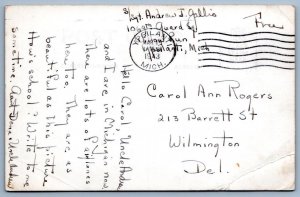 Sgt. Andrew J. Gillis
Guard Sq
Run
Ypsilanti, Mich
Free
YPSILANTI
1943
MICH.
Hello Carol, Uncle Andrew
and I are in Michigan now.
There are lots of airplanes
here too. They are as
beautiful as this picture.
How's school? Write to me
sometime. Aunt Dot & Uncle Andrew
Carol Ann Rogers
213 Barrett St
Wilmington
Del.